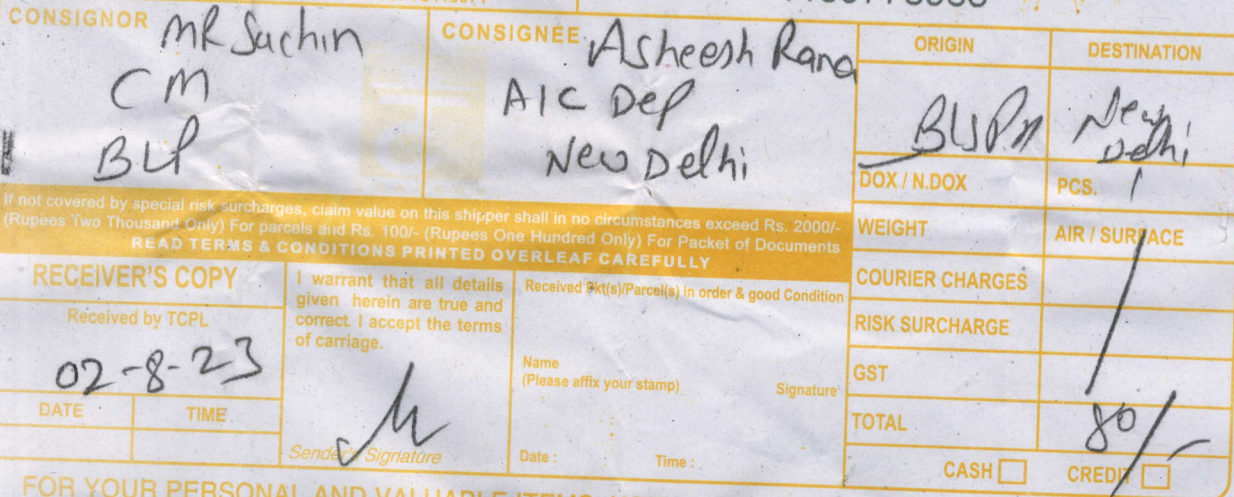 CONSIGNOR MR Sachin
CM
BLP
CONSIGNEE Asheesh Rana
AIC Dep
New Delhi
ORIGIN
DESTINATION
New
Delhi
DOX / N.DOX
PCS. 1
WEIGHT
AIR / SURFACE
COURIER CHARGES
RISK SURCHARGE
GST
TOTAL
80/-
CASH
CREDIT
If not covered by special risk surcharges, claim value on this shipper shall in no circumstances exceed Rs. 2000/-
(Rupees Two Thousand Only) For parcels and Rs. 100/- (Rupees One Hundred Only) For Packet of Documents
READ TERMS & CONDITIONS PRINTED OVERLEAF CAREFULLY
RECEIVER'S COPY
Received by TCPL
02-8-23
DATE
TIME
I warrant that all details
given herein are true and
correct. I accept the terms
of carriage.
Sender's Signature
Received Pkt(s)/Parcel(s) in order & good Condition
Name
(Please affix your stamp)
Signature
Date :
Time :
FOR YOUR PERSONAL AND VALUABLE ITEMS